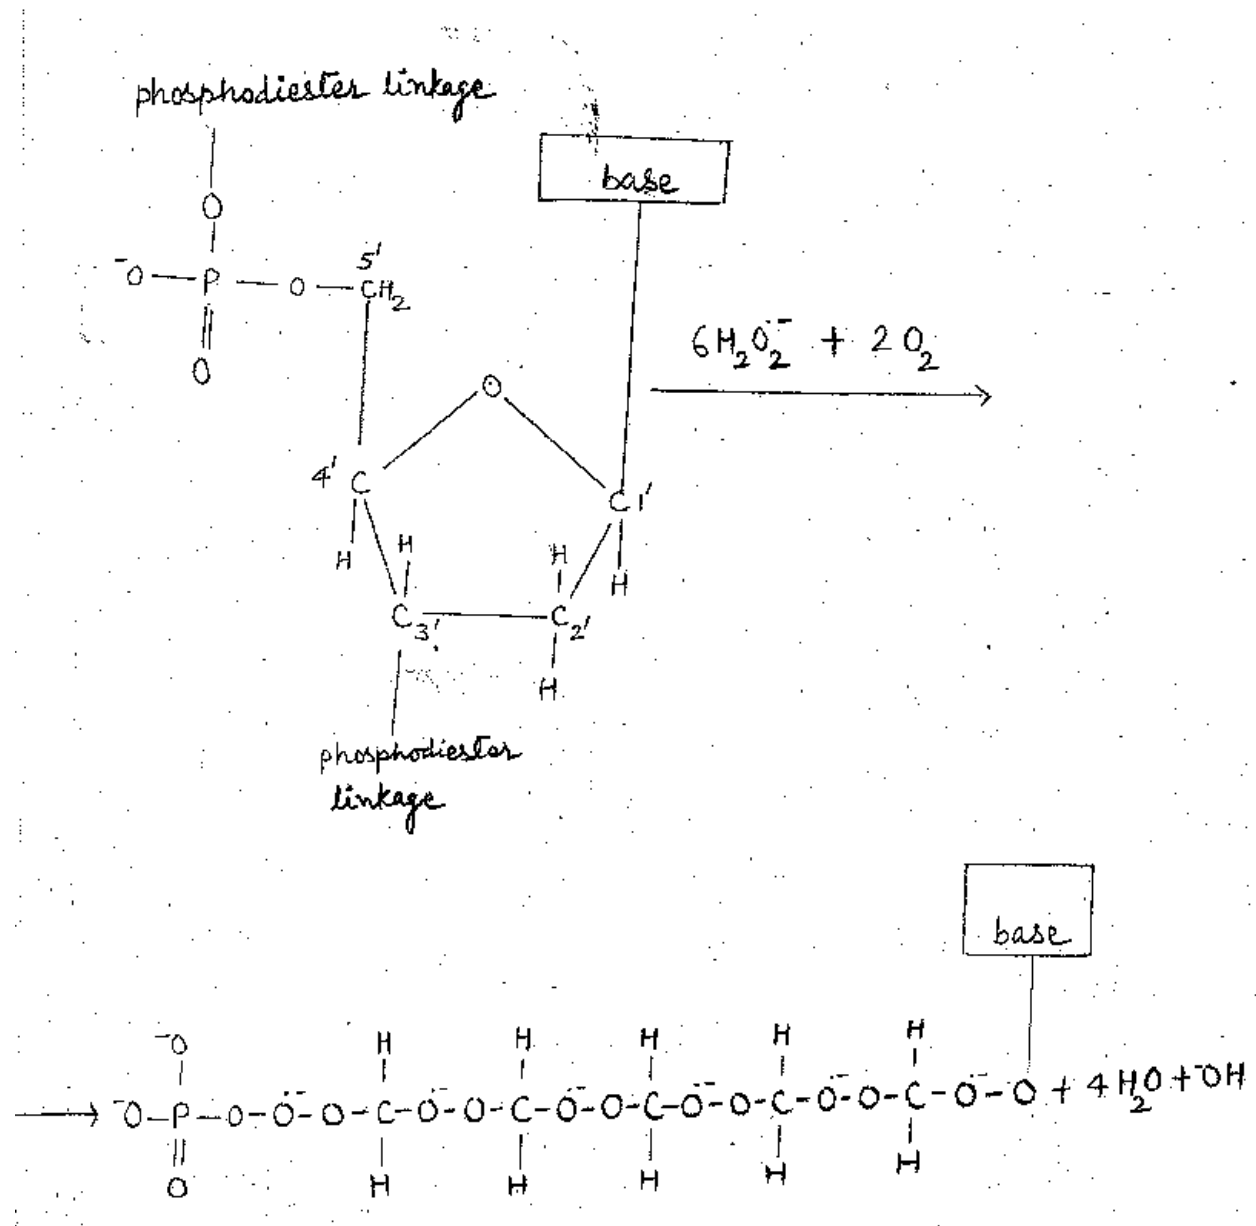 phosphodiester linkage
base
O
5'
⁻O—P—O—CH₂
O
6H₂O₂·⁻ + 2O₂
O
4' C
C1'
H
H
H
H
C3'
C2'
H
phosphodiester
linkage
base
⁻O H H H H H
⁻O-P-O-O·⁻-O-C-O·⁻-O-C-O·⁻-O-C-O·⁻-O-C-O·⁻-O-C-O·⁻-O + 4H₂O + ⁻OH
O H H H H H